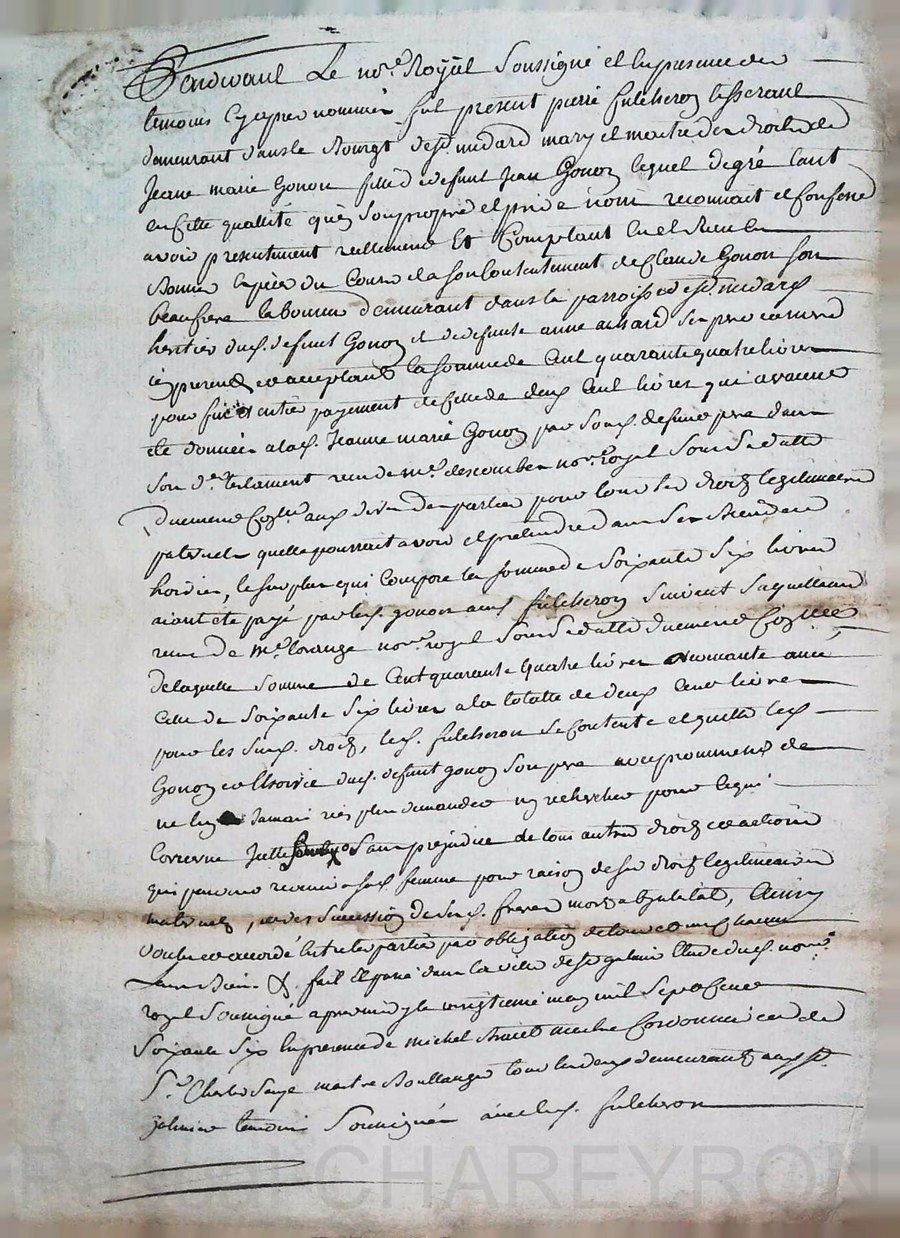 Pardevant Le no.re Royal Soussigné et En presence des
temoins cy apres nommés fut present pierre fulcheron tisserant
demeurant dans le Bourgt de st. medard mary et maitre des droits de
Jeane marie Gonon fille de defunt Jean Gonon lequel de gré tant
en cette quallité qu'en son propre et privé nom reconnait et Confesse
avoir presentement reellement Et Comptant eu et Receu en
Bonnes Especes du Cours et a son Contentement de Claude Gonon son
beaufrere laboureur demeurant dans la parroisse de st. medard
heritier dud. defunt Gonon et de defunte anne achard ses pere et mere
icy present et acceptant la somme de Cent quarante quatre livres
pour fin et entier payement de Celle de deux Cent livres qui avaient
ete données a lad. Jeanne marie Gonon par sond. defunt pere dans
son d.er testament reçu de me. descombes no.re royal Sous sa datte
duement Con.lle aux dires des parties pour tous les droits legitimaires
paternels quelle pourrait avoir et pretendre dans ses Biens et
hoiries, le surplus qui Compose la somme de Soixante Six livres
aiant eté payé par led. gonon aud. fulcheron Suivant sa quittance
reçue de Me. lorange no.re royal Sous sa datte duement Con.llée
de laquelle Somme de Cent quarante quatre livres revenante avec
Celle de Soixante Six livres a la totalle de deux Cent livres
pour les Susd. droits, led. fulcheron Se Contente et quitte led.
Gonon et l'hoirie dud. defunt gonon Son pere avec promesse de
ne luy Jamais rien plus demander ny rechercher pour ce qui
Concerne Sans prejudice de tous autres droits et actions
qui peuvent revenir a sad. femme pour raison de ses droits legitimaires
maternels, et des Succession de Sesd. freres morts abintestat, Ainsy
Voulu et accordé Entre les parties par obligation de tous et un chacun
Leurs Biens &. fait Et passé dans la ville de st galmier Etude dud. no.re
royal Soussigné apres midy le vingtieme may mil Sept Cent
Soixante Six En presence de michel maitre Cordonnier et de
S.r Charles maitre Boullanger tous les deux demeurants aud. st.
galmier temoins Soussignés avec led. fulcheron
Pascal CHAREYRON